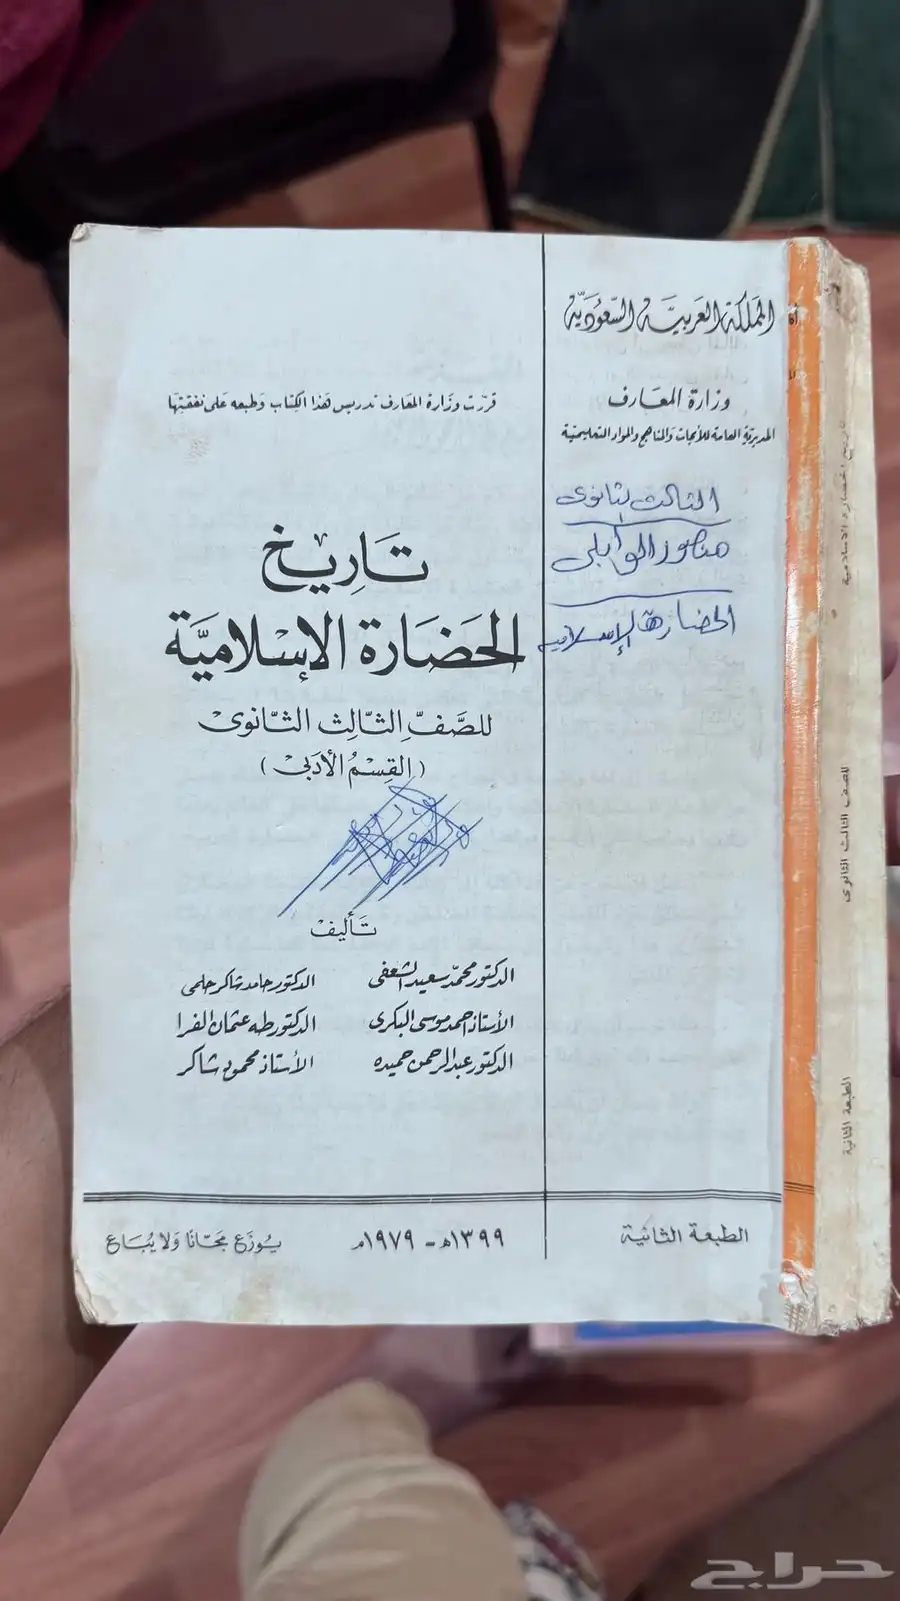 المملكة العربية السعودية
وزارة المعارف
المديرية العامة للأبحاث والمناهج والمواد التعليمية
الثالث الثانوى
منصور الوابلى
الحضارة الإسلامية
قررت وزارة المعارف تدريس هذا الكتاب وطبعه على نفقتها
تاريخ
الحضارة الإسلامية
للصف الثالث الثانوى
(القسم الأدبى)
تأليف
الدكتور محمد سعيد الشعفى الدكتور حامد شاكر حلمى
الأستاذ احمد موسى البكرى الدكتور طه عثمان الفرا
الدكتور عبدالرحمن حميده الأستاذ محمود شاكر
الطبعة الثانية ١٣٩٩هـ - ١٩٧٩م يوزع مجانا ولا يباع
تاريخ الحضارة الاسلامية
للصف الثالث الثانوى
الطبعة الثانية
حراج